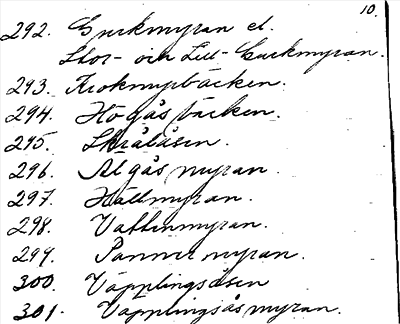 10.
292. Gurkmyran el.
Stor- och Lill-Gurkmyran.
293. Krokmyrbäcken.
294. Högåsbäcken.
295. Skrålåsen.
296. Algåsmyran
297. Hällmyran.
298. Vattenmyran.
299. Pannmyran.
300. Väpplingsåsen
301. Väpplingsåsmyran.